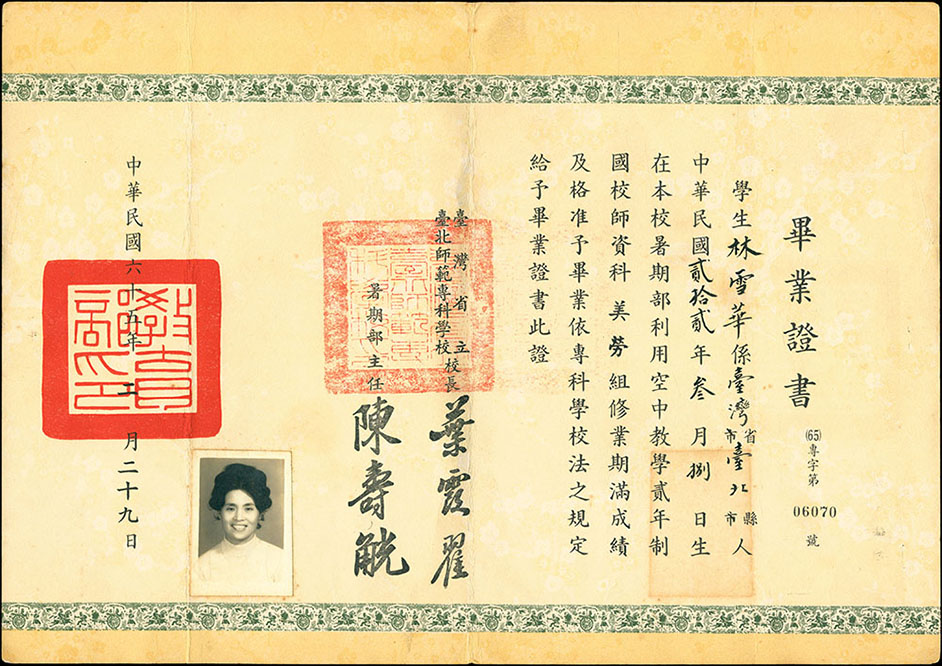 畢業證書
(65)專字第 06070 號
學生林雪華係臺灣省市臺北縣市人
中華民國貳拾貳年叁月捌日生
在本校暑期部利用空中教學貳年制
國校師資科美勞組修業期滿成績
及格准予畢業依專科學校法之規定
給予畢業證書此證
臺灣省立
臺北師範專科學校校長葉霞翟
暑期部主任陳壽觥
中華民國六十五年二月二十九日